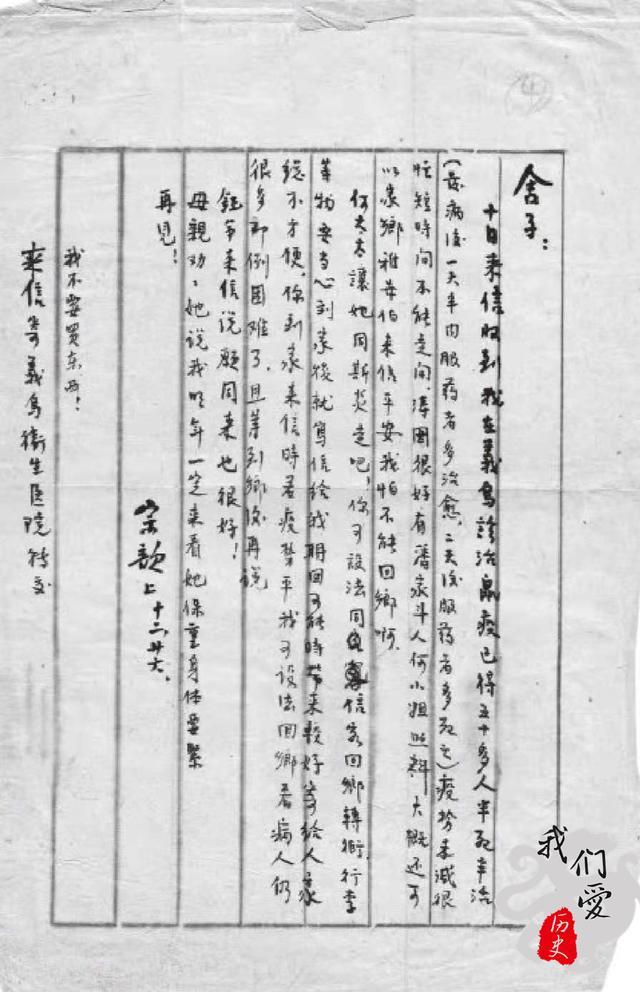 ④
舍子：
十日來信收到我在義烏診治鼠疫已得五十多人半死半治
(發病後一天半內服藥者多治愈，二天後服藥者多死亡)疫勢未減很
忙短時間不能走開，濤囝很好有潘家斗人何小姐照料大概还可
以家鄉雅母怕來信平安我怕不能回鄉啊，
何太太讓她同斯炎走吧，你可設法同信客回鄉轉衢，行李
等物要当心到家後就寫信給我明囝可能時带来較好寄给人家
總不方便，你到家来信時若疫势平我可設法回鄉看病人仍
很多卻倒困难了，且等到鄉後再说
鈺弟来信说願同来也很好！
母親劝她说我明年一定来看她保重身体要緊
再見！
宗歆上十二，廿六、
我不要買东西！
来信寄義烏衛生医院转交
我们爱
历史